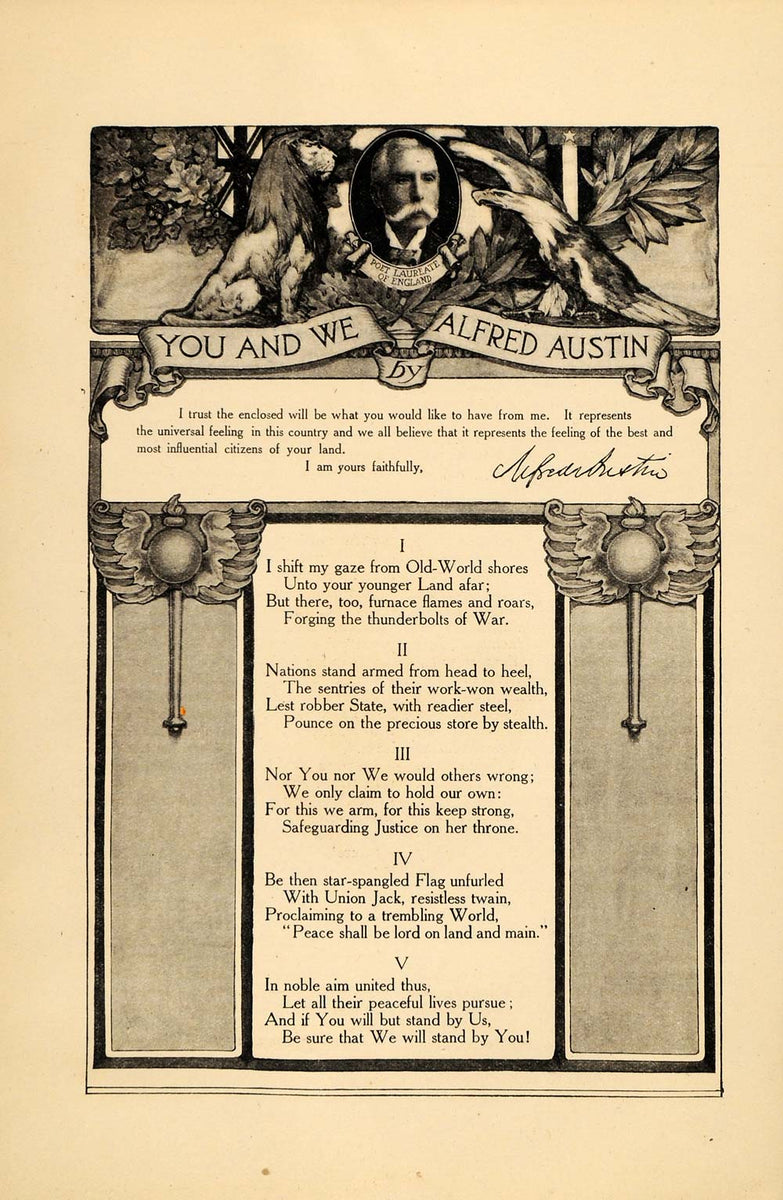 POET LAUREATE
OF ENGLAND
YOU AND WE
by
ALFRED AUSTIN
I trust the enclosed will be what you would like to have from me. It represents
the universal feeling in this country and we all believe that it represents the feeling of the best and
most influential citizens of your land.
I am yours faithfully,
Alfred Austin
I
I shift my gaze from Old-World shores
Unto your younger Land afar;
But there, too, furnace flames and roars,
Forging the thunderbolts of War.
II
Nations stand armed from head to heel,
The sentries of their work-won wealth,
Lest robber State, with readier steel,
Pounce on the precious store by stealth.
III
Nor You nor We would others wrong;
We only claim to hold our own:
For this we arm, for this keep strong,
Safeguarding Justice on her throne.
IV
Be then star-spangled Flag unfurled
With Union Jack, resistless twain,
Proclaiming to a trembling World,
"Peace shall be lord on land and main."
V
In noble aim united thus,
Let all their peaceful lives pursue;
And if You will but stand by Us,
Be sure that We will stand by You!